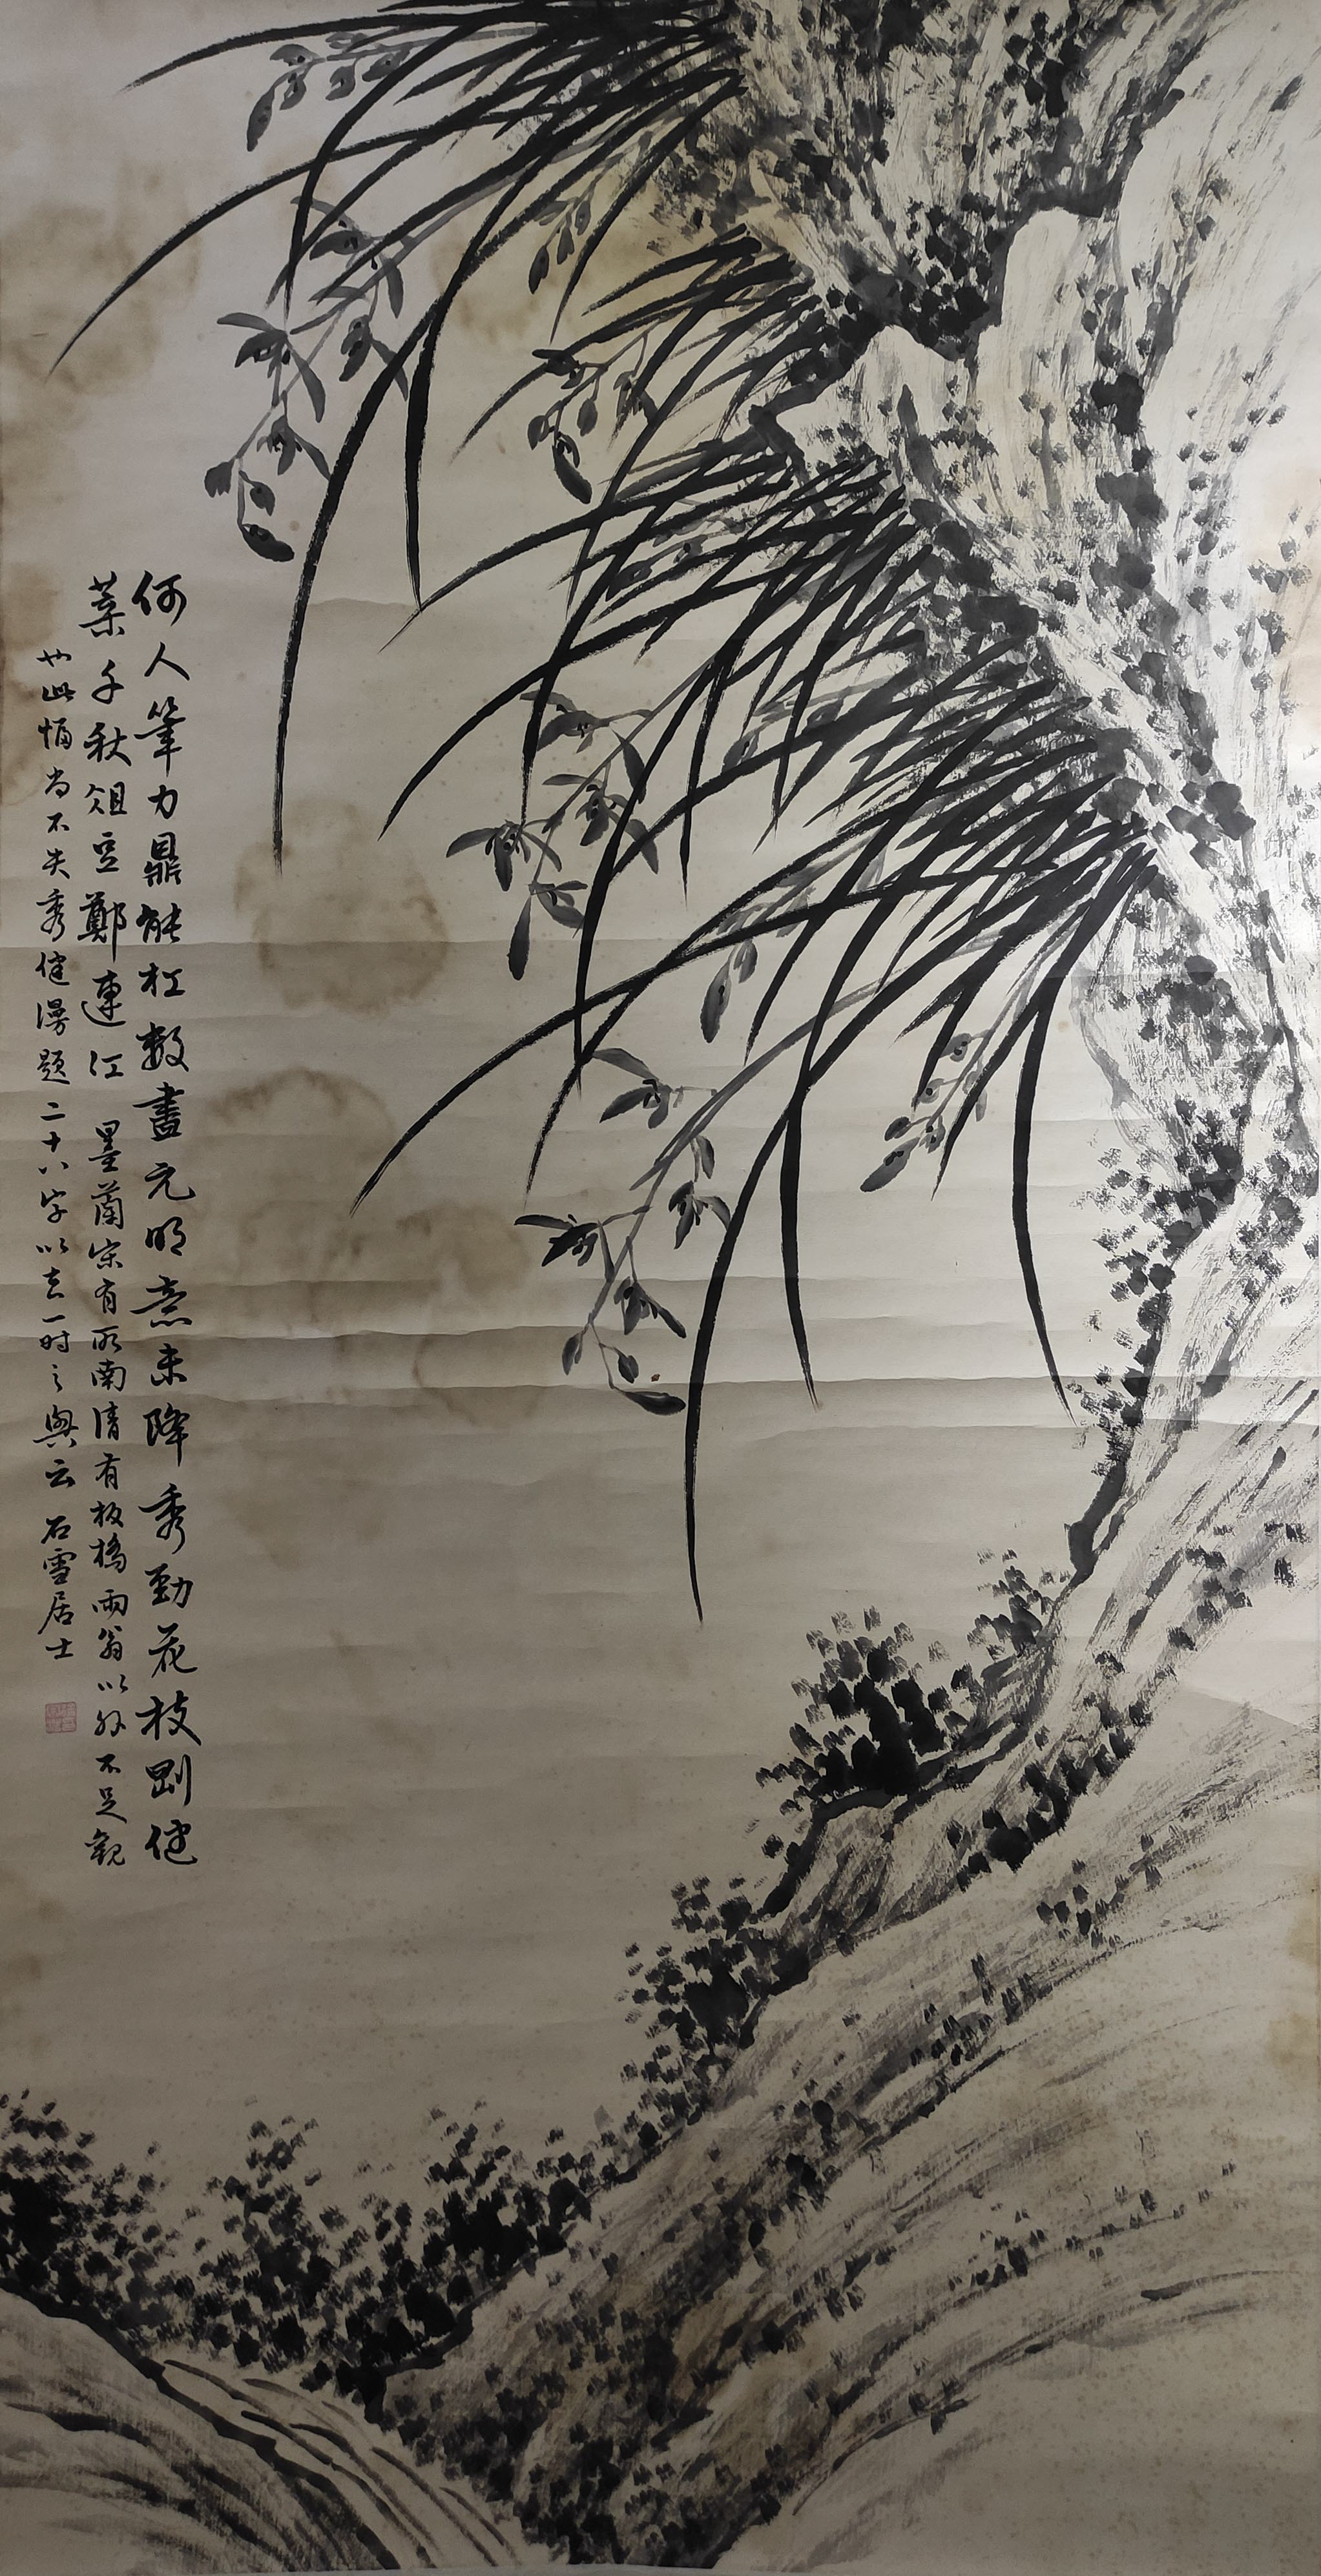 何人筆力鼎能杠數盡元明意未降秀勁花枝剛健
葉千秋俎豆鄭連江 墨蘭宋有所南清有板橋兩翁以外不足觀
也此幀尚不失秀健漫題二十八字以志一時之興云 石雪居士